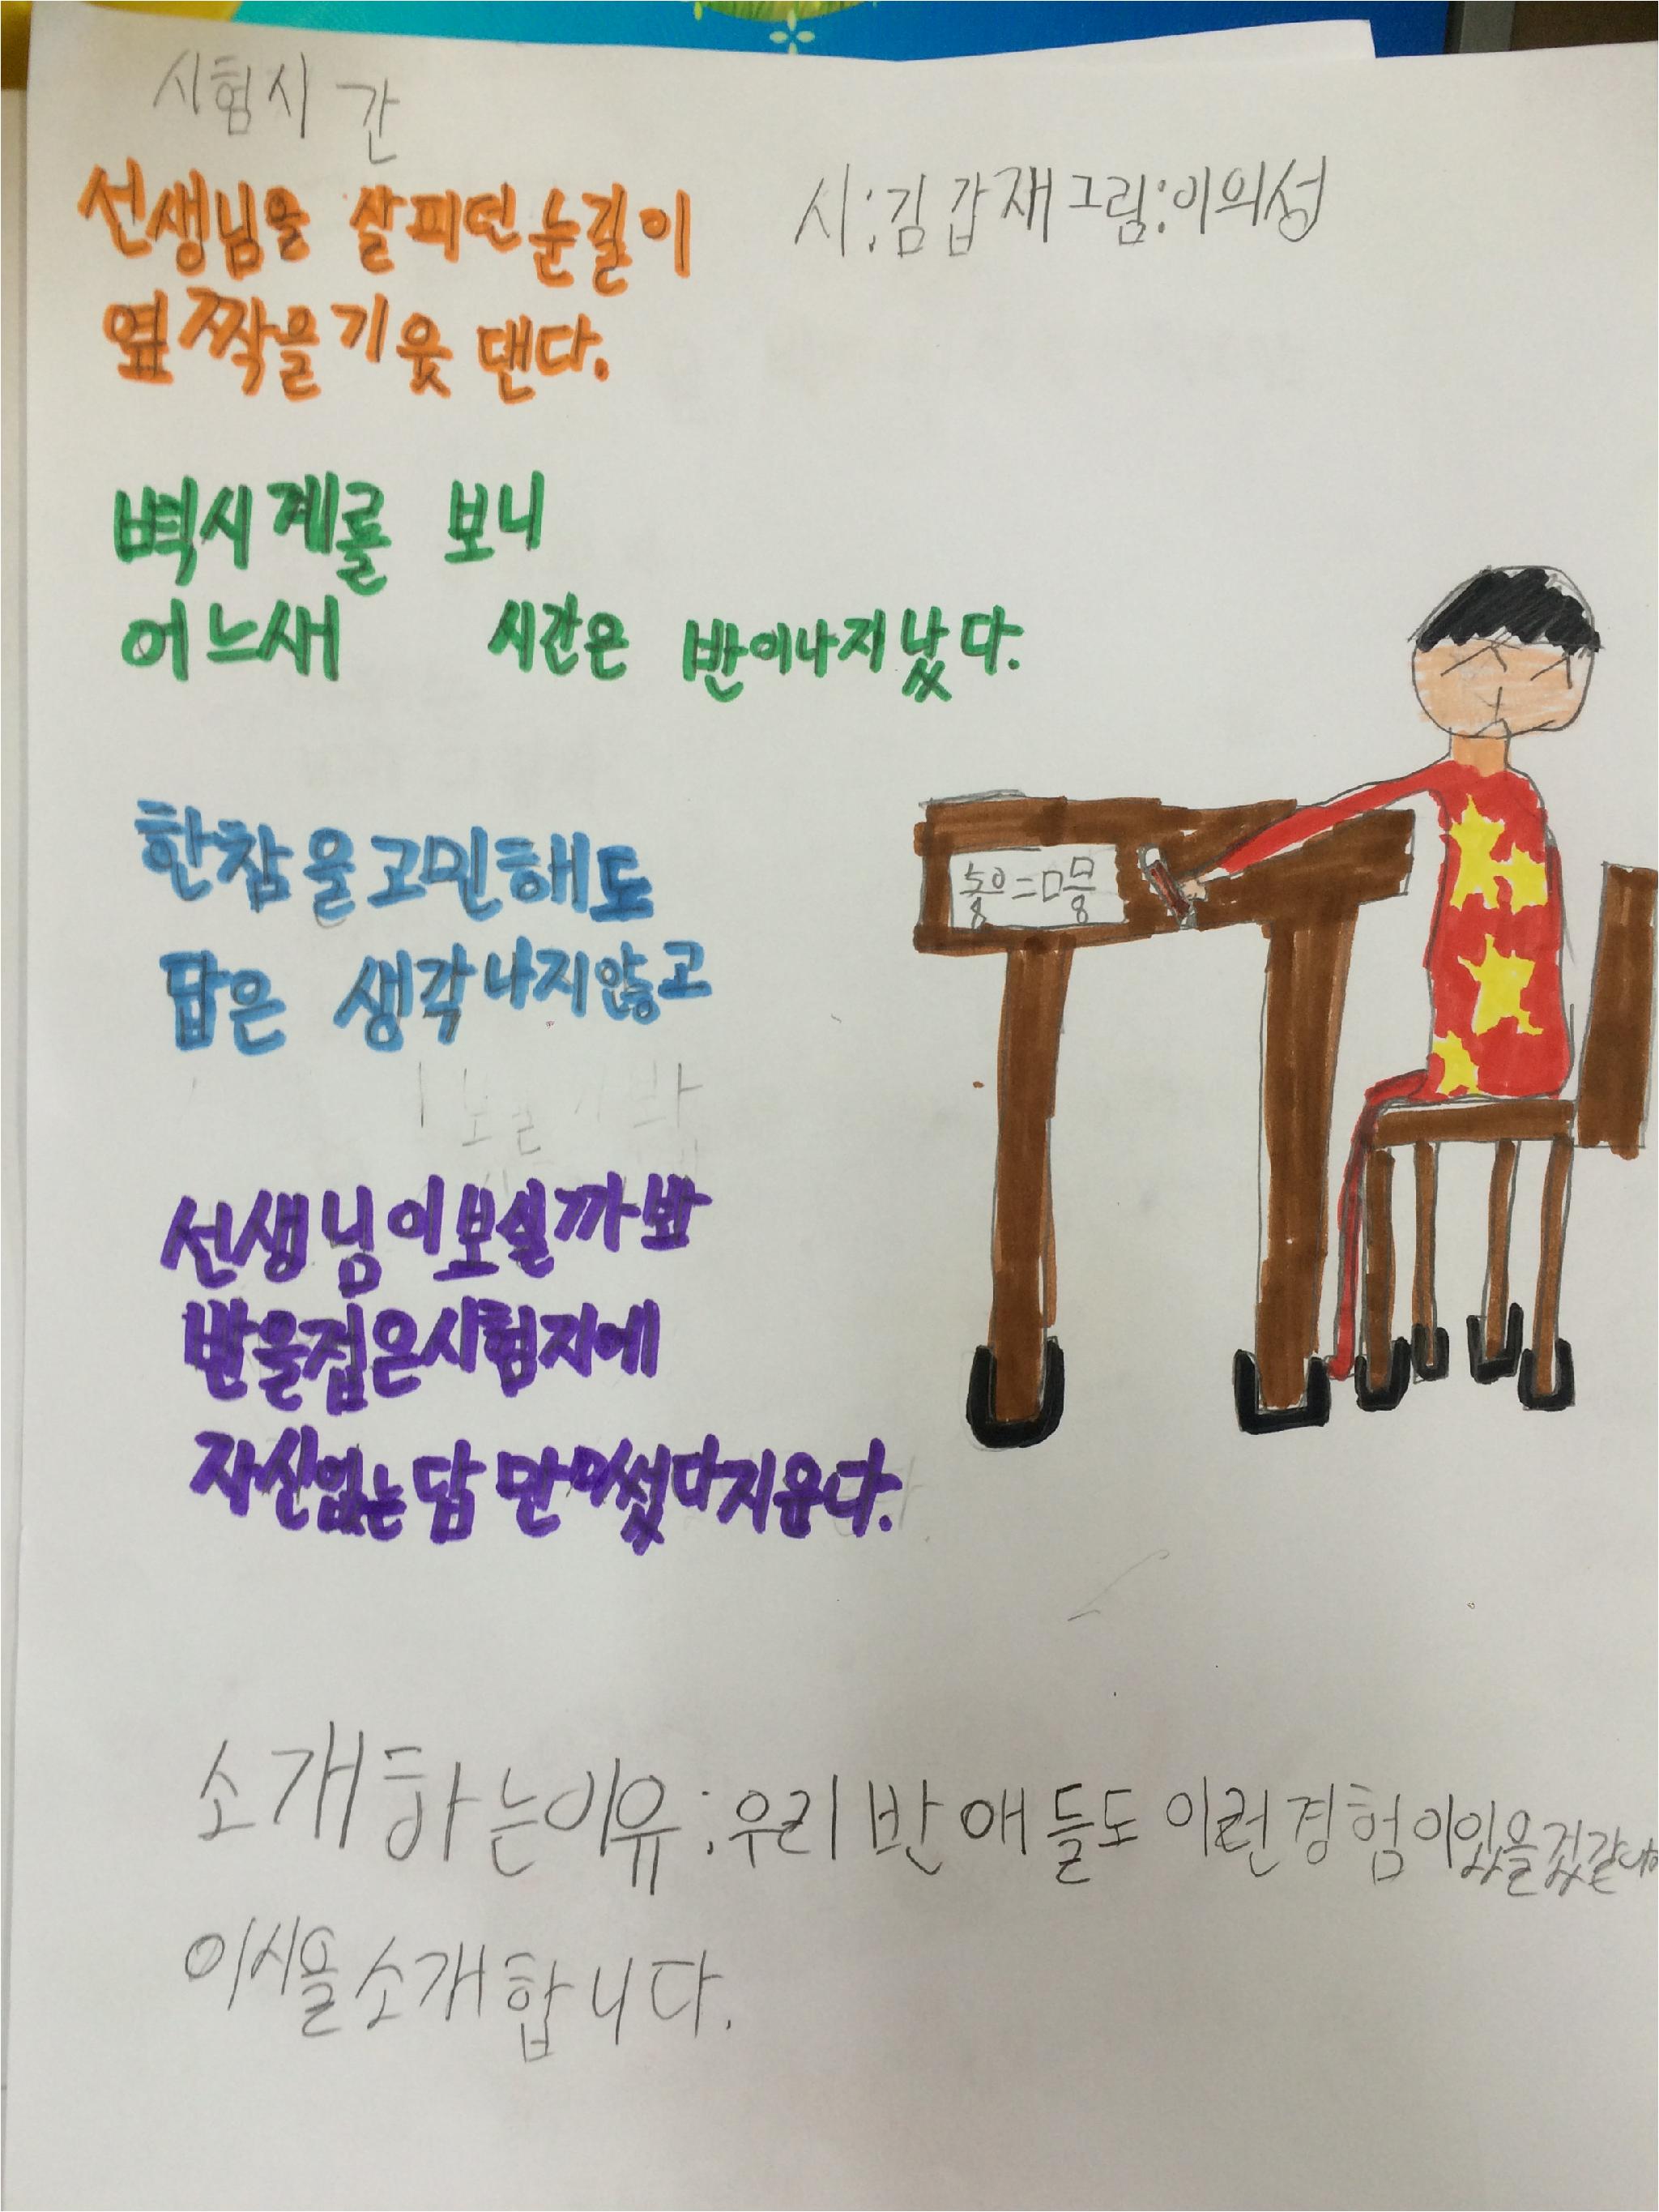 시험시간
시:김갑재 그림:이의성
선생님을 살피던 눈길이
옆짝을 기웃 댄다.
벽시계를 보니
어느새 시간은 반이나 지났다.
한참을 고민해도
답은 생각나지 않고
50/8=□□/8
선생님이 보실까 봐
반을 접은 시험지에
자신 없는 답만 썼다 지운다.
소개하는 이유:우리 반 애들도 이런 경험이 있을 것 같
이 시을 소개합니다.